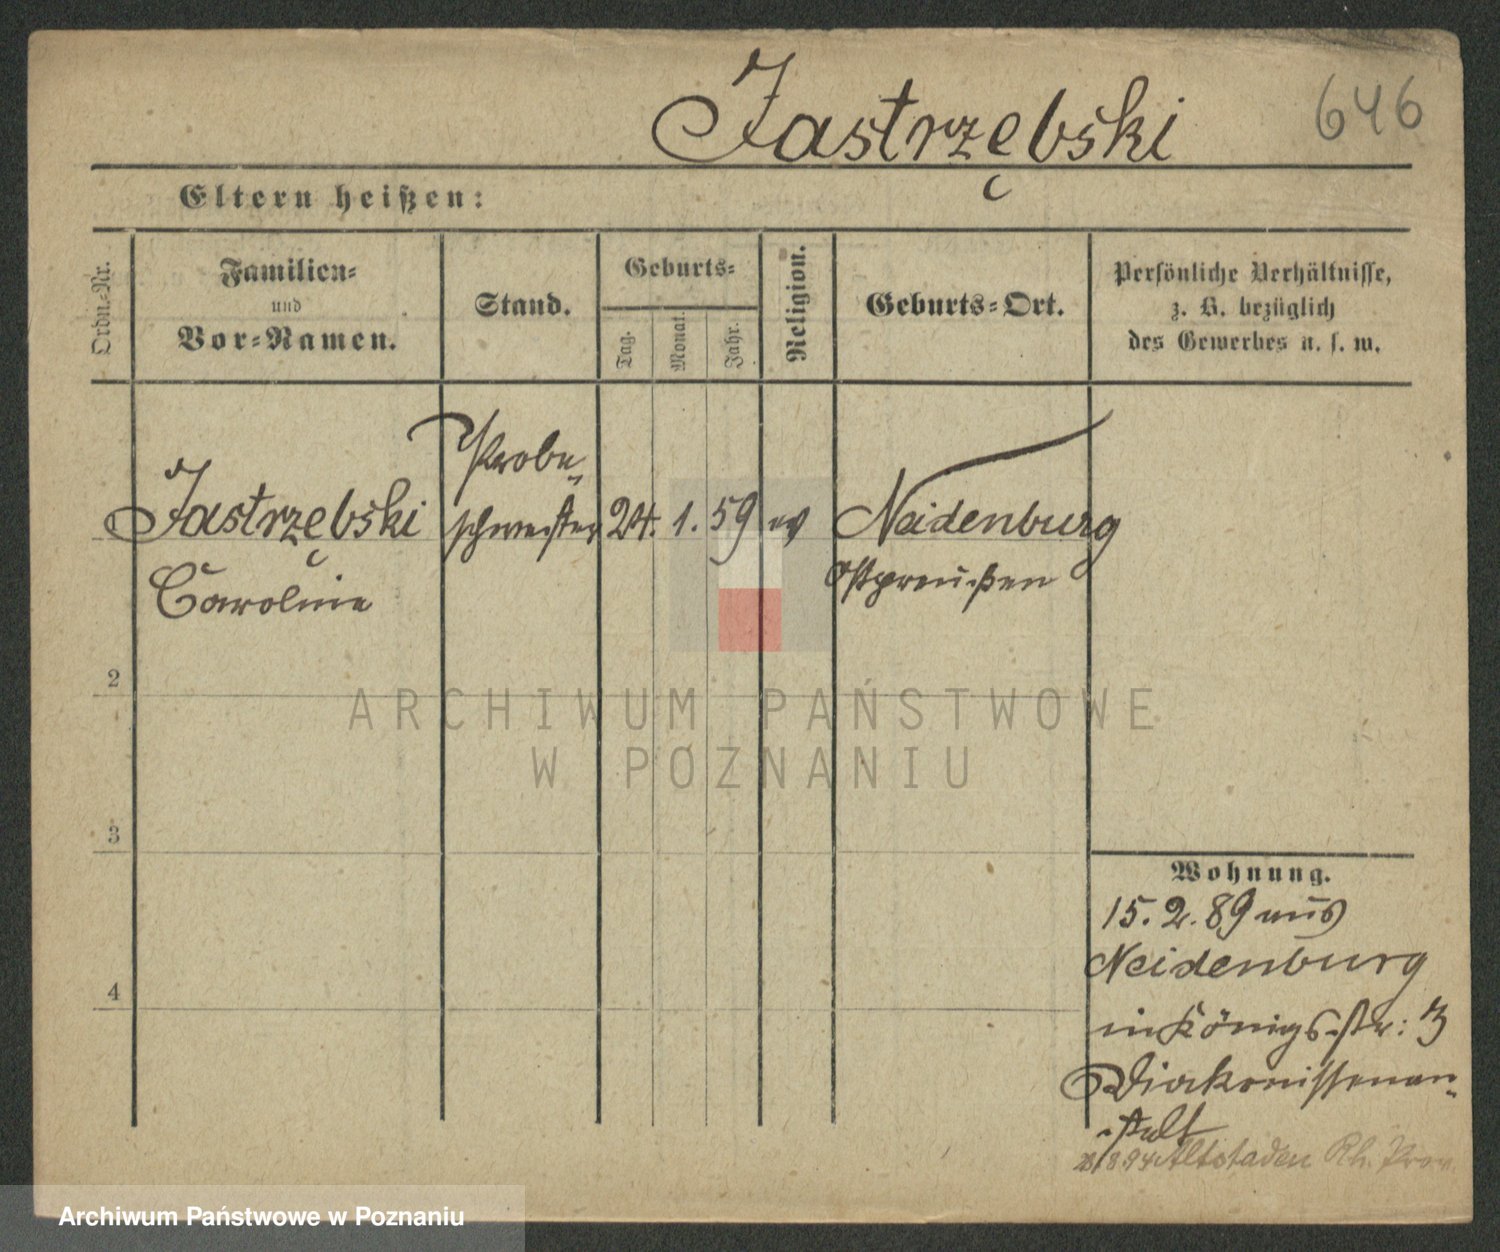 Jastrzębski 646
Eltern heißen:
Ordn.-Nr.
Familien-
und
Vor-Namen.
Stand.
Geburts-
Tag.
Monat.
Jahr.
Religion.
Geburts-Ort.
Persönliche Verhältnisse,
z. B. bezüglich
des Gewerbes u. s. w.
Jastrzębski
Caroline
Probe-
schwester
24. 1. 59 ev
Neidenburg
Ostpreußen
2
3
4
Wohnung.
15. 2. 89 aus
Neidenburg
in Königs-str: 3
Diakonissenan-
-stalt
8.94 Altstaden Rh. Prov.
ARCHIWUM PAŃSTWOWE
W POZNANIU
Archiwum Państwowe w Poznaniu